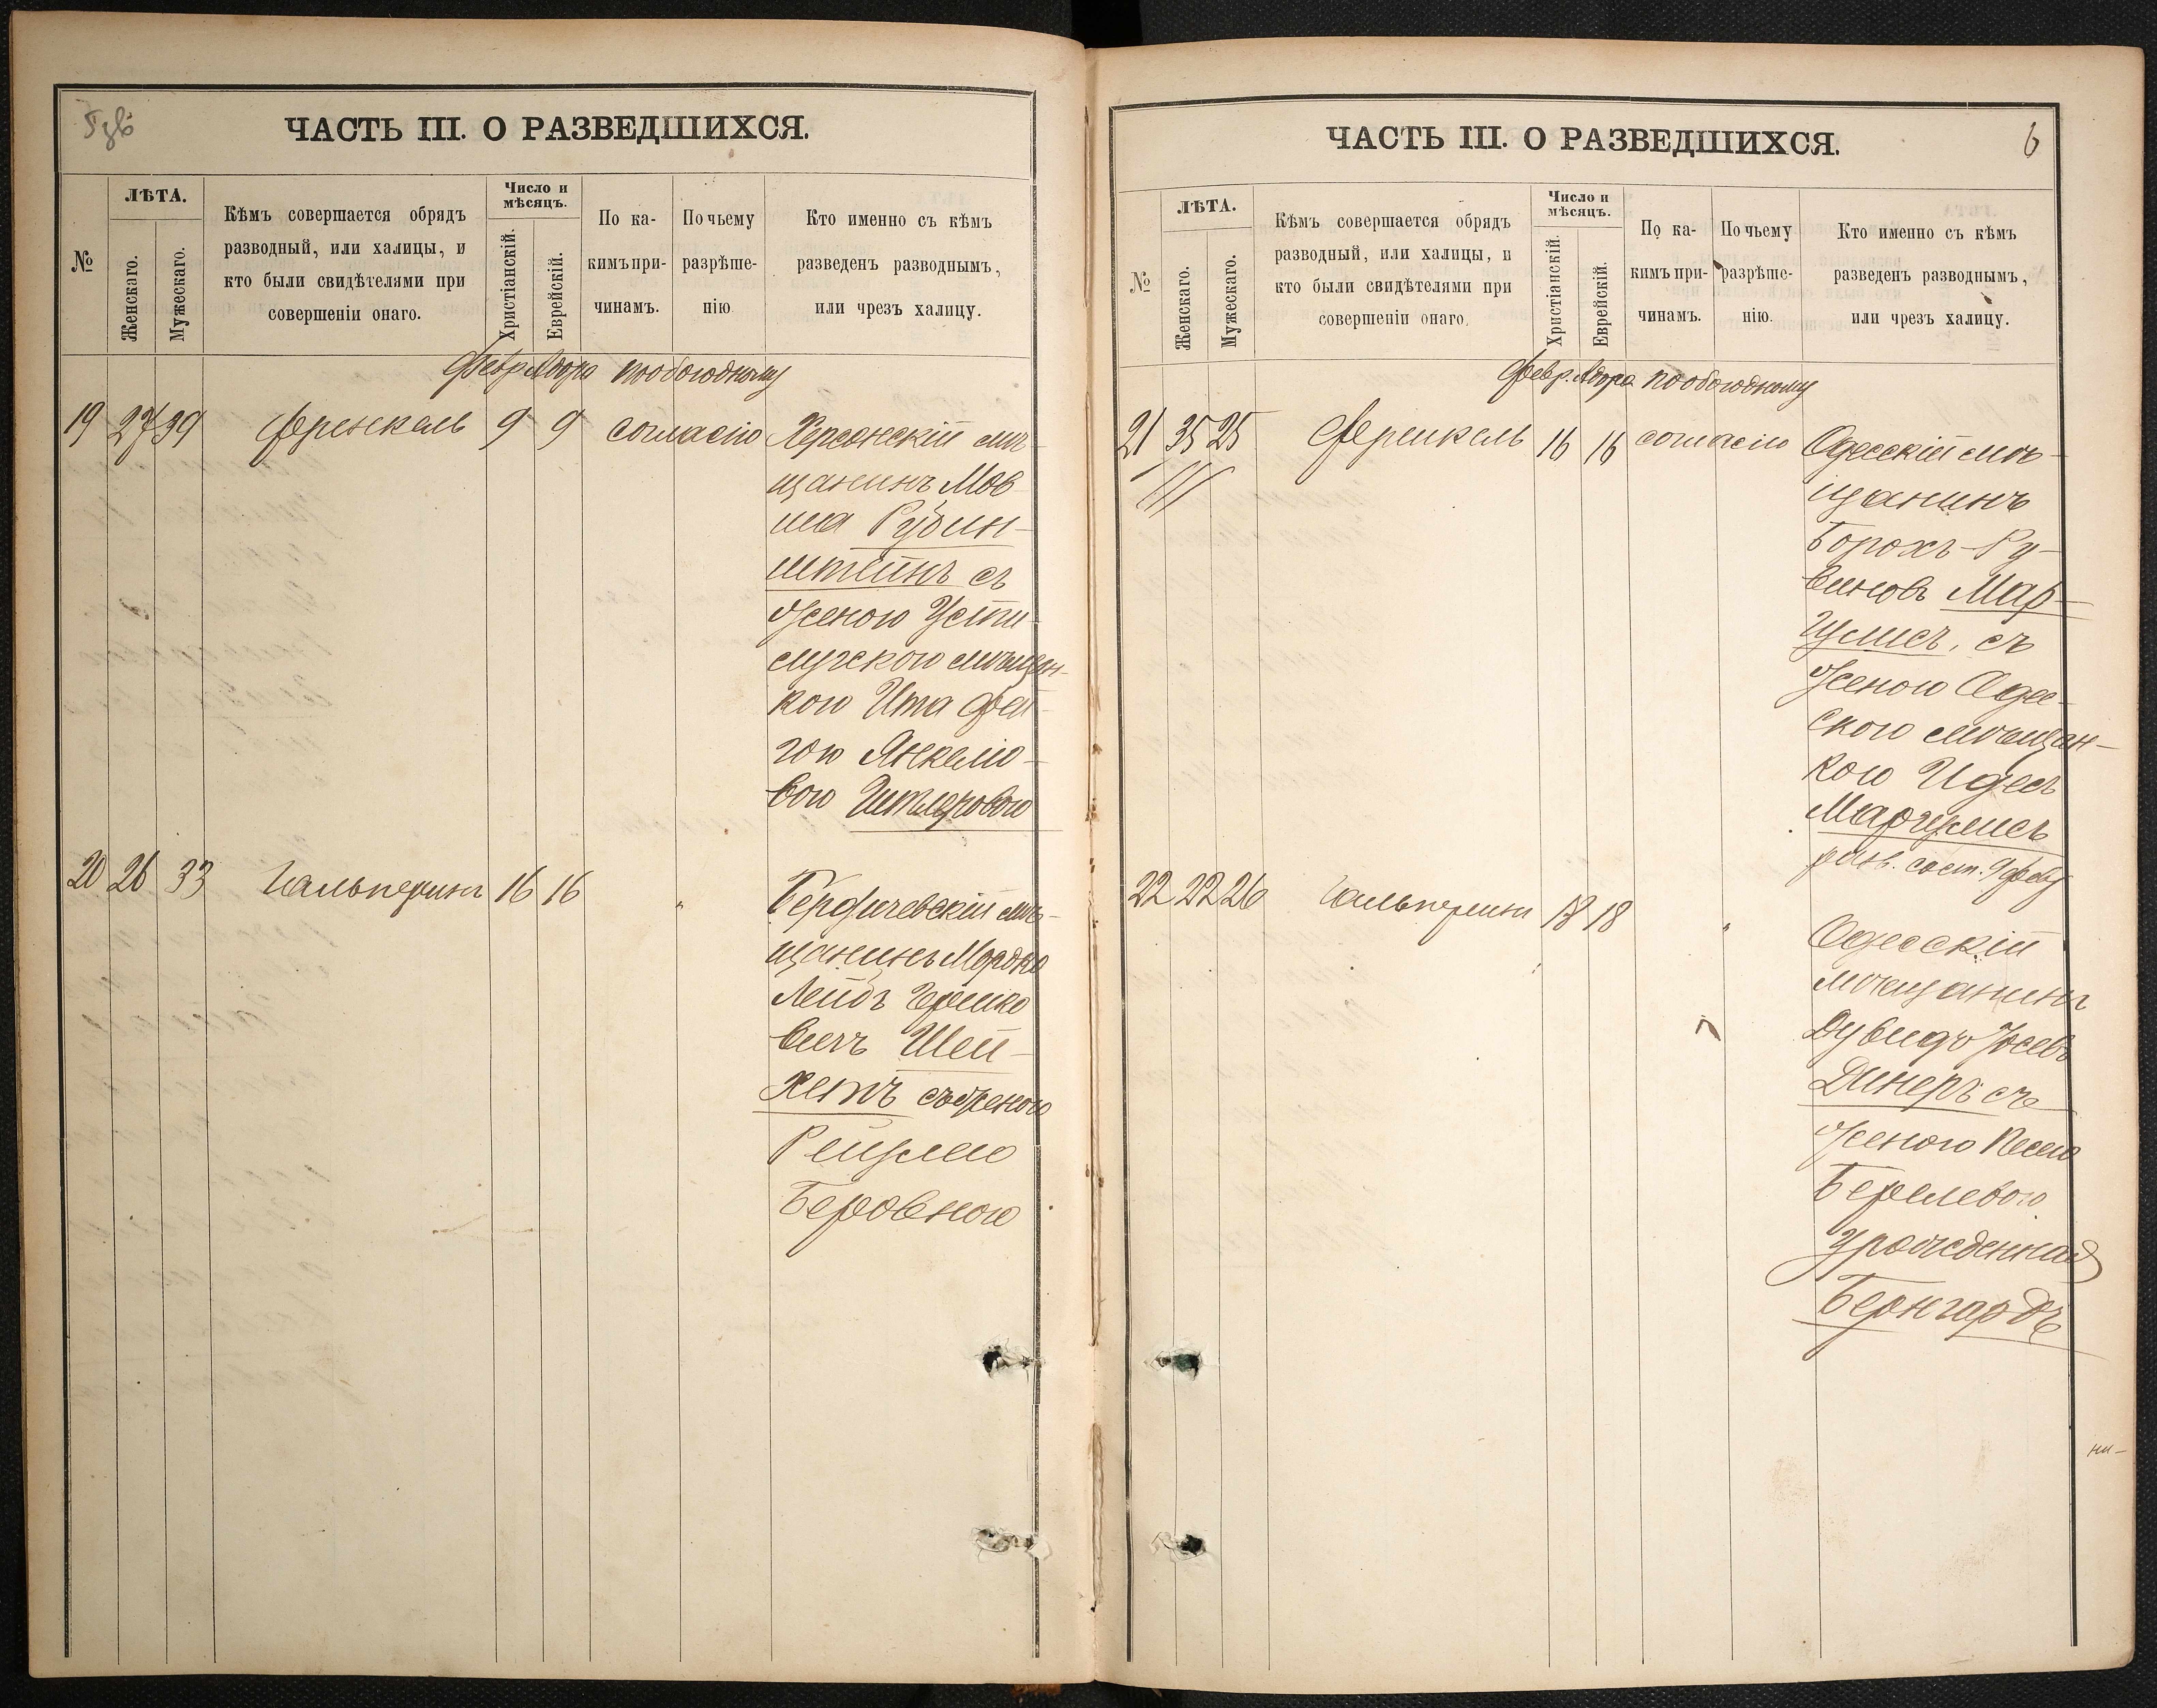 ЧАСТЬ III. О РАЗВЕДШИХСЯ.
№
ЛѢТА.
Женскаго.
Мужескаго.
Кѣмъ совершается обрядъ
разводный, или халицы, и
кто были свидѣтелями при
совершеніи онаго.
Число и
мѣсяцъ.
Христіанскій.
Еврейскій.
По ка-
кимъ при-
чинамъ.
По чьему
разрѣше-
нію.
Кто именно съ кѣмъ
разведенъ разводнымъ,
или чрезъ халицу.
Февр. Адора по обоюдному
19 27 39 Френкель 9 9 согласію Херсонскій мѣ-
щанинъ Мов
ша Рубин-
штейнъ съ
женою Усти-
лугскою мѣщан-
кою Ита Фей-
гою Янкеліо-
вою
20 26 33 Гальперинъ 16 16 " Бердичевскій мѣ-
щанинъ Мордко
Лейбъ Гершко
вичъ Шей-
хетъ съ женою
Рейзлею
Беровною
ЧАСТЬ III. О РАЗВЕДШИХСЯ.
6
№
ЛѢТА.
Женскаго.
Мужескаго.
Кѣмъ совершается обрядъ
разводный, или халицы, и
кто были свидѣтелями при
совершеніи онаго.
Число и
мѣсяцъ.
Христіанскій.
Еврейскій.
По ка-
кимъ при-
чинамъ.
По чьему
разрѣше-
нію.
Кто именно съ кѣмъ
разведенъ разводнымъ,
или чрезъ халицу.
Февр. Адора по обоюдному
21 35 25 Френкель 16 16 согласію Одесскій мѣ-
щанинъ
Борохъ-Ру-
виновъ Мар-
гулисъ, съ
женою Одес-
скою мѣщан-
кою Идесъ
Маргулисъ
разв. сост. 9 февр
22 22 26 Гальперинъ 18 18 " Одесскій
мѣщанинъ
Дувидъ Іосевъ
Динеръ съ
женою Песею
Берелевою
Урожденная
Бернгардъ
ни-